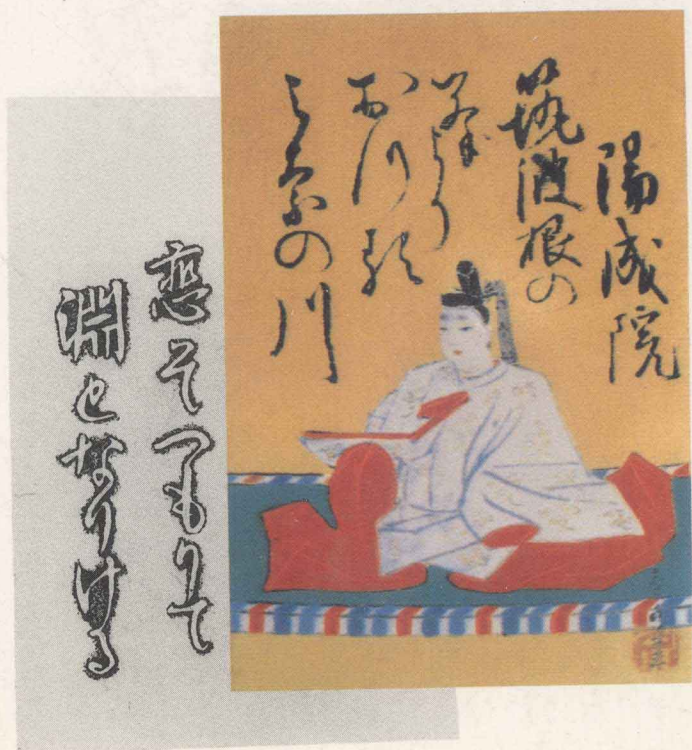 陽成院
筑波根の
峯より
おつる
みなの川
恋そつもりて
淵となりける